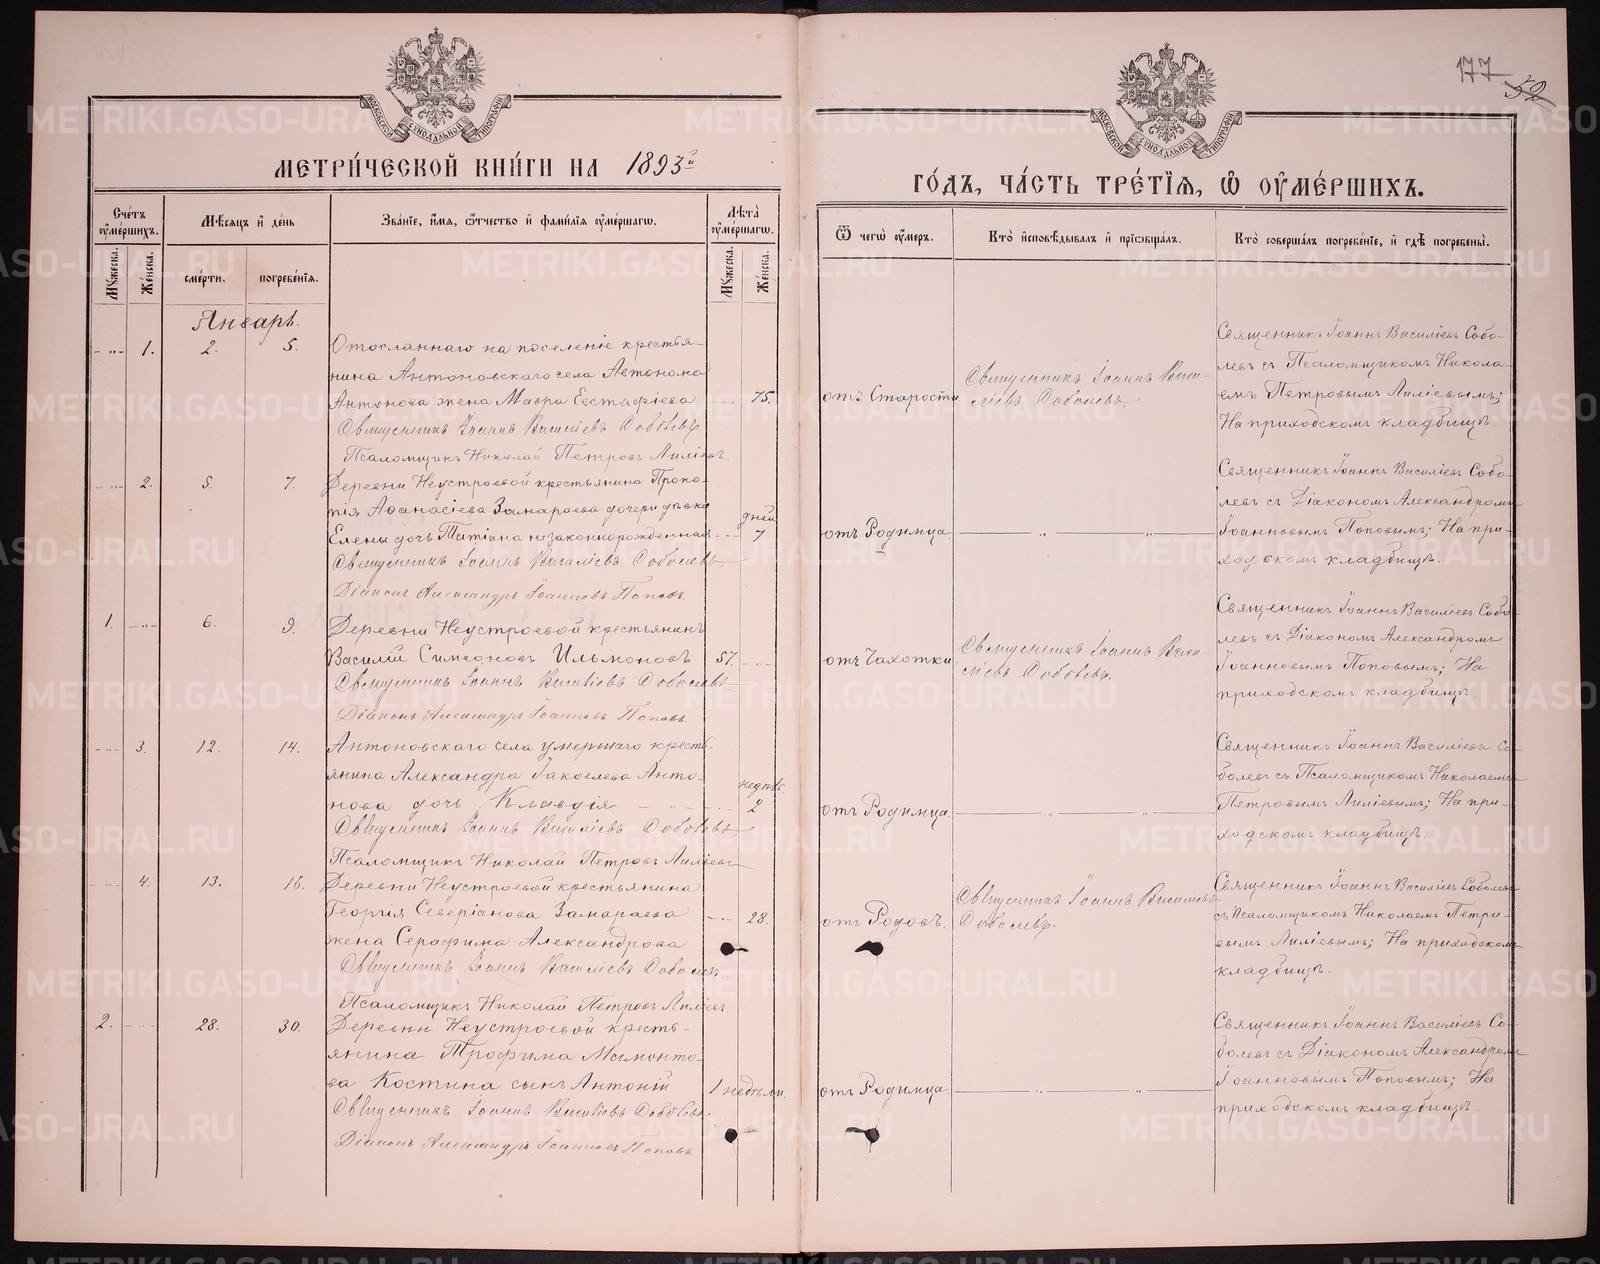 177
52
МОСКОВСКОЙ СѴНОДАЛЬНОЙ ТИПОГРАФІИ
МОСКОВСКОЙ СѴНОДАЛЬНОЙ ТИПОГРАФІИ
МЕТРИ́ЧЕСКОЙ КНИ́ГИ НА 1893й
ГО́ДЪ, ЧА́СТЬ ТРЕ́ТІѦ, Ѡ҆ ОУ҆МЕ́РШИХЪ.
Сче́тъ оу҆ме́ршихъ.
Мѣ́сяцъ и҆ де́нь
Зва́ніе, и҆́мя, ѻ҆́тчество и҆ фами́лія оу҆ме́ршагѡ.
Лѣта̀ оу҆ме́ршагѡ.
Ѿ чегѡ̀ оу҆́меръ.
Кто̀ и҆сповѣ́дывалъ и҆ прїѡбща́лъ.
Кто̀ соверша́лъ погребе́нїе, и҆ гдѣ̀ погребены̀.
Му́жеска.
Же́нска.
сме́рти.
погребе́нїя.
Му́жеска.
Же́нска.
Январь.
- „ - 1. 2. 5. Отосланнаго на поселеніе крестья-
нина Антоновскаго села Автонома
Антонова жена Мавра Евстафіева 75.
Священникъ Іоаннъ Василіевъ Соболевъ
Псаломщикъ Николай Петровъ Лиліевъ.
отъ Старости
Священникъ Іоаннъ Васи-
ліевъ Соболевъ.
Священникъ Іоаннъ Василіевъ Собо-
левъ съ Псаломщикомъ Никола-
емъ Петровымъ Лиліевымъ;
На приходскомъ кладбищѣ.
- „ - 2. 5. 7. Деревни Неустроевой крестьянина Проко-
пія Аѳанасіева Замараева дочери дѣвки
Елены дочь Татіана незаконнорожденная дней 7
Священникъ Іоаннъ Василіевъ Соболевъ
Діаконъ Александръ Іоанновъ Поповъ.
отъ Родимца
Священникъ Іоаннъ Василіевъ Собо-
левъ съ Діакономъ Александромъ
Іоанновымъ Поповымъ; На при-
ходскомъ кладбищѣ.
1. - „ - 6. 9. Деревни Неустроевой крестьянинъ
Василій Симеоновъ Ильмоновъ 57.
Священникъ Іоаннъ Василіевъ Соболевъ
Діаконъ Александръ Іоанновъ Поповъ.
отъ Чахотки.
Священникъ Іоаннъ Васи-
ліевъ Соболевъ.
Священникъ Іоаннъ Василіевъ Собо-
левъ съ Діакономъ Александромъ
Іоанновымъ Поповымъ; На
приходскомъ кладбищѣ.
- „ - 3. 12. 14. Антоновскаго села умершаго кресть-
янина Александра Іаковлева Анто-
нова дочь Клавдія недѣль 2
Священникъ Іоаннъ Василіевъ Соболевъ
Псаломщикъ Николай Петровъ Лиліевъ
отъ Родимца.
Священникъ Іоаннъ Василіевъ Со-
болевъ съ Псаломщикомъ Николаемъ
Петровымъ Лиліевымъ; На при-
ходскомъ кладбищѣ.
- „ - 4. 13. 16. Деревни Неустроевой крестьянина
Георгія Северіанова Замараева 28.
жена Серафима Александрова
Священникъ Іоаннъ Василіевъ Соболевъ
Псаломщикъ Николай Петровъ Лиліевъ
отъ Родовъ.
Священникъ Іоаннъ Василіевъ
Соболевъ.
Священникъ Іоаннъ Василіевъ Соболевъ
съ Псаломщикомъ Николаемъ Петро-
вымъ Лиліевымъ; На приходскомъ
кладбищѣ.
2. - „ - 28. 30. Деревни Неустроевой кресть-
янина Трофима Мамонто-
ва Костина сынъ Антоній 1 недѣли.
Священникъ Іоаннъ Василіевъ Соболевъ
Діаконъ Александръ Іоанновъ Поповъ
отъ Родимца
Священникъ Іоаннъ Василіевъ Со-
болевъ съ Діакономъ Александромъ
Іоанновымъ Поповымъ; На
приходскомъ кладбищѣ.
METRIKI.GASO-URAL.RU